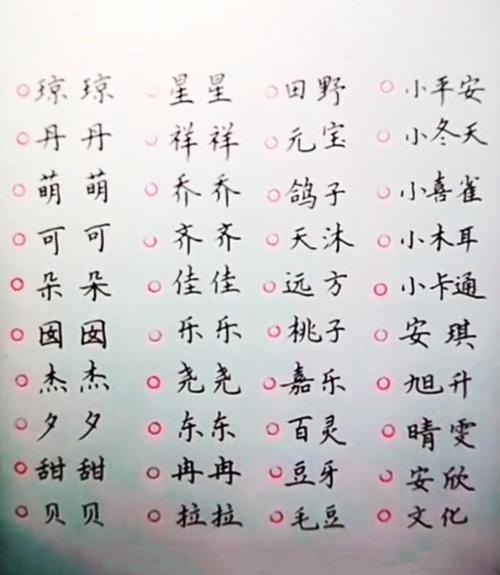 琼琼 星星 田野 小平安
丹丹 祥祥 元宝 小冬天
萌萌 乔乔 鸽子 小喜雀
可可 齐齐 天沐 小木耳
朵朵 佳佳 远方 小卡通
囡囡 乐乐 桃子 安琪
杰杰 尧尧 嘉乐 旭升
夕夕 东东 百灵 晴雯
甜甜 冉冉 豆牙 安欣
贝贝 拉拉 毛豆 文化